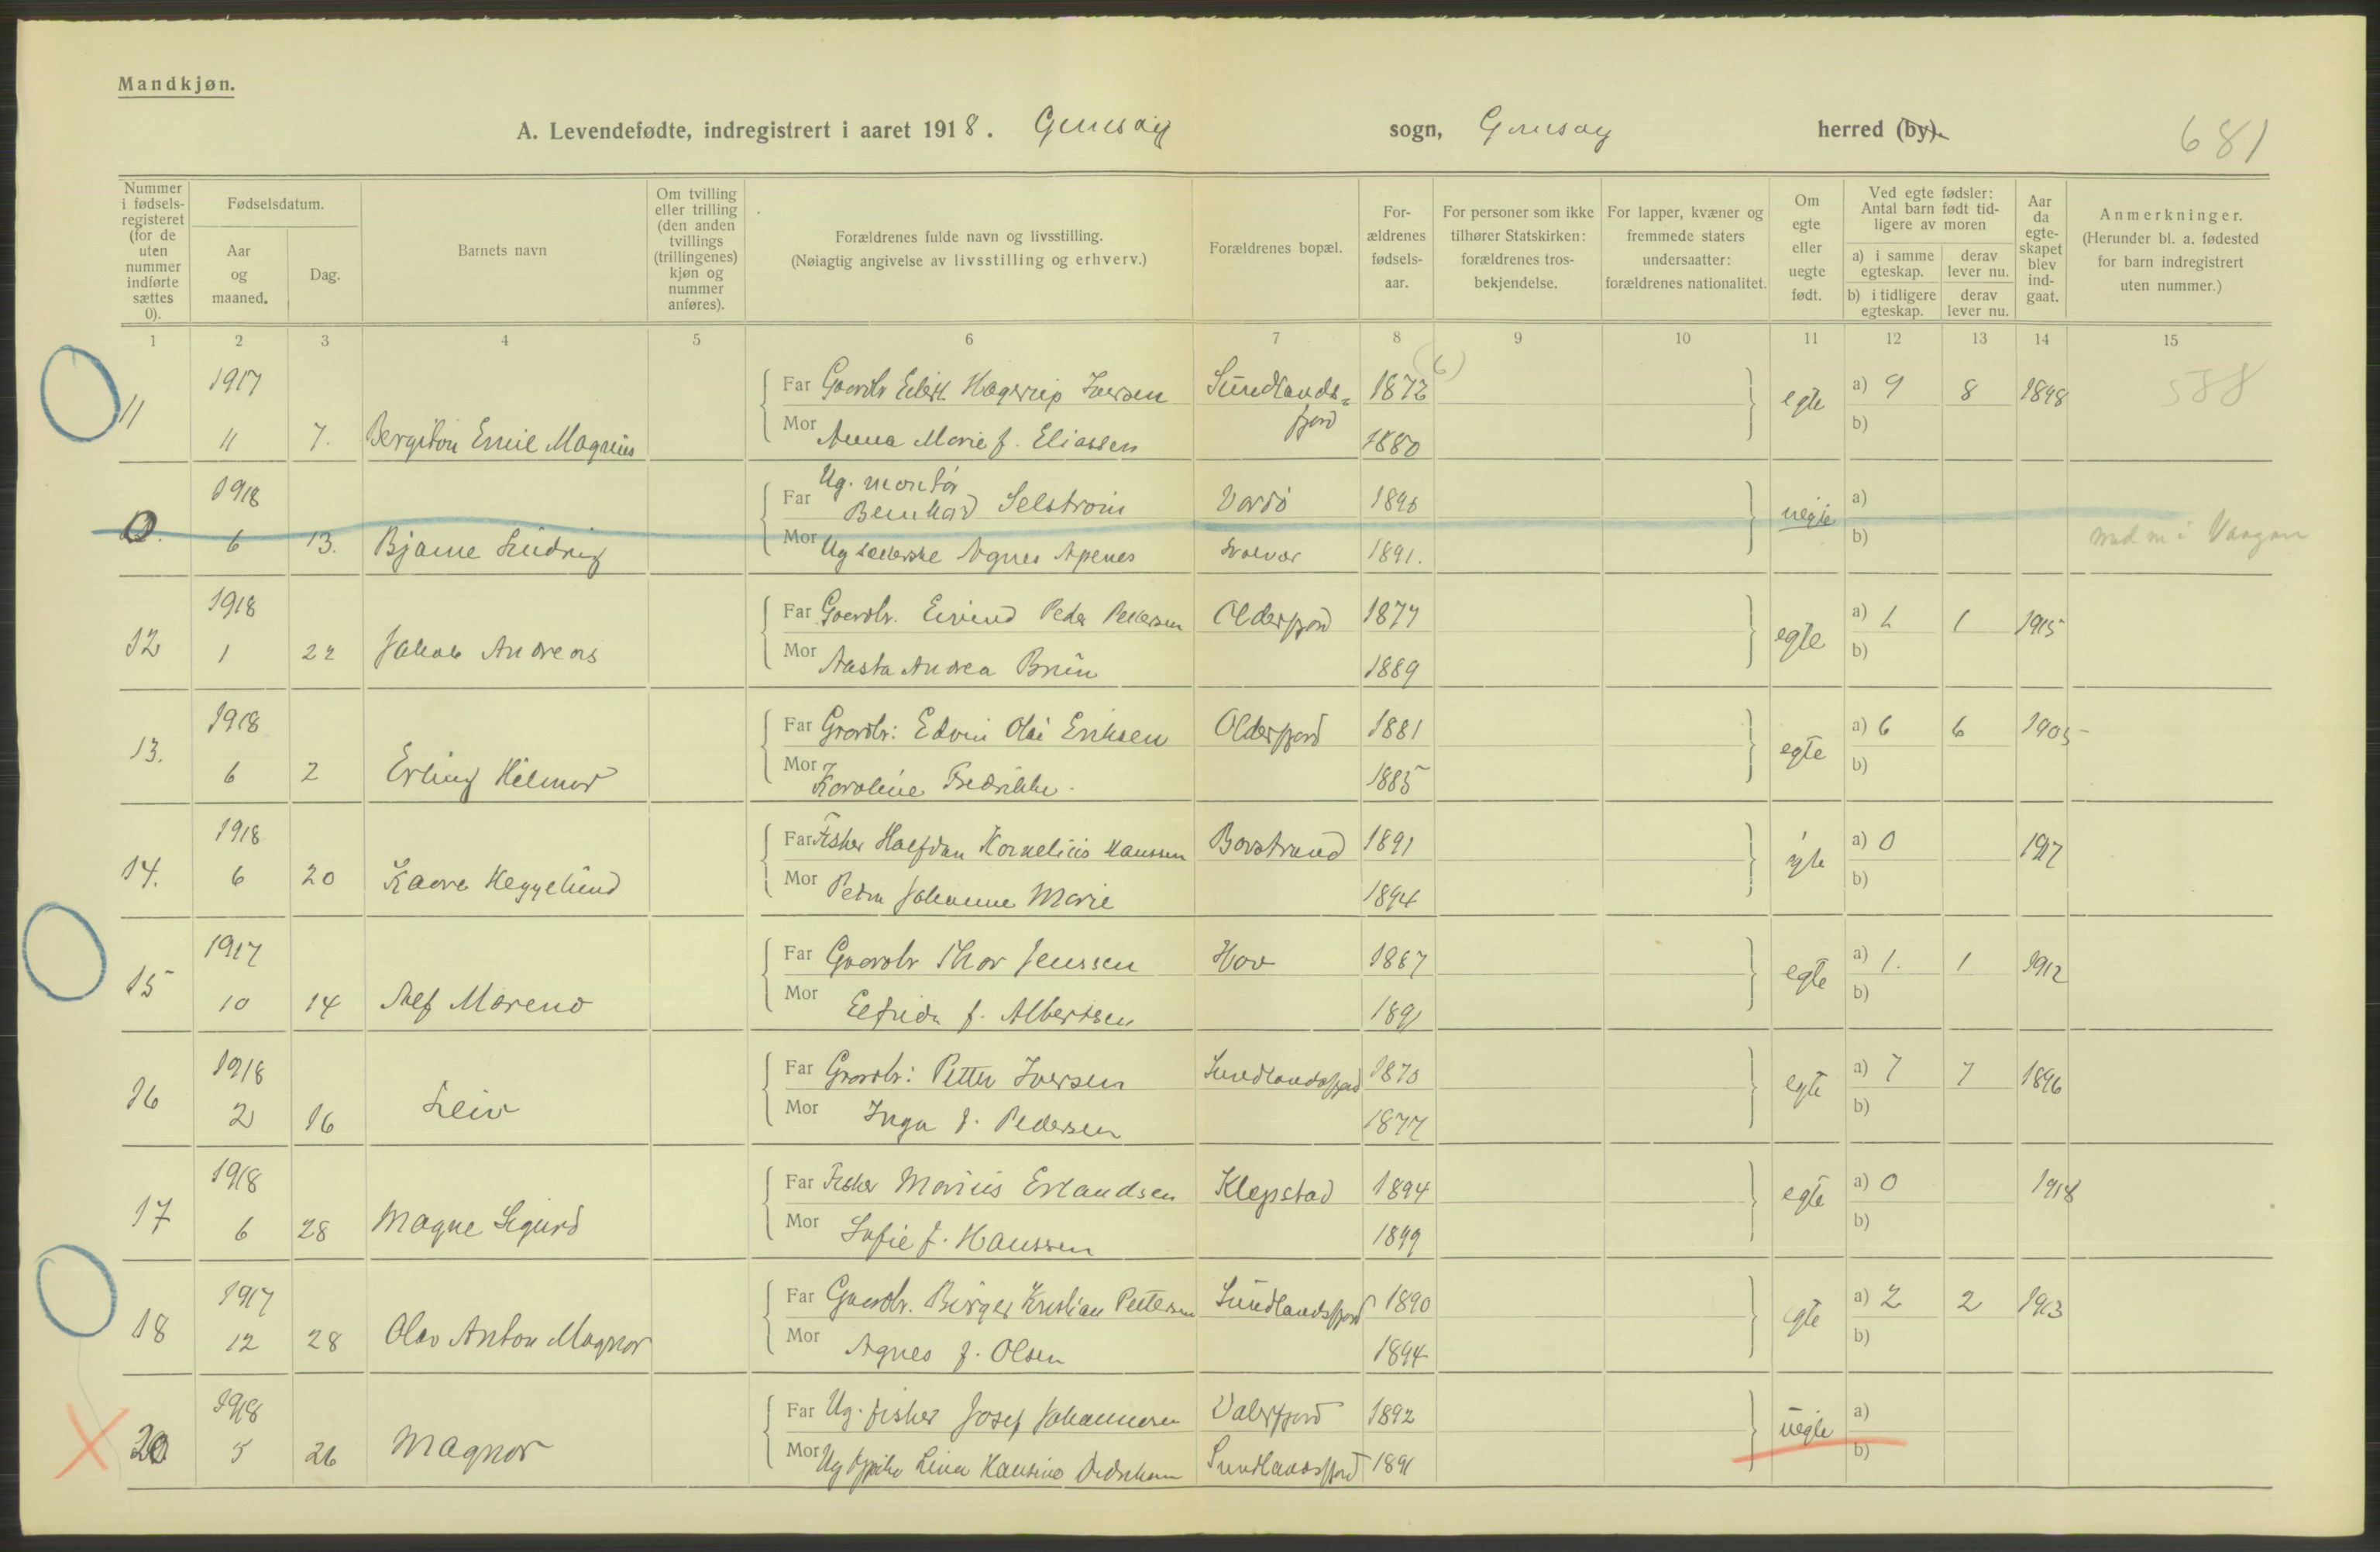 Mandkjøn.
A. Levendefødte, indregistrert i aaret 1918. Gimsøy sogn, Gimsøy herred (by).
681
Nummer i fødselsregisteret (for de uten nummer indførte sættes 0).
Fødselsdatum.
Aar og maaned.
Dag.
Barnets navn
Om tvilling eller trilling (den anden tvillings (trillingenes) kjøn og nummer anføres).
Forældrenes fulde navn og livsstilling.
(Nøiagtig angivelse av livsstilling og erhverv.)
Forældrenes bopæl.
Forældrenes fødselsaar.
For personer som ikke tilhører Statskirken: forældrenes trosbekjendelse.
For lapper, kvæner og fremmede staters undersaatter: forældrenes nationalitet.
Om egte eller uegte født.
Ved egte fødsler: Antal barn født tidligere av moren
a) i samme egteskap.
derav lever nu.
b) i tidligere egteskap.
derav lever nu.
Aar da egteskapet blev indgaat.
Anmerkninger.
(Herunder bl. a. fødested for barn indregistrert uten nummer.)
1 2 3 4 5 6 7 8 9 10 11 12 13 14 15
(6)
1917 Far Gaardbr Eilert Hagerup Iversen Sundlands= 1872 egte a) 9 8 1898 588
fjord
11 11 7. Bergiton Emil Magnus Mor Anna Marie f. Eliassen 1880 b)
1918 Far Ug. montør
Bernhard Selstrøm Vardø 1895 uegte a)
0. 6 13. Bjarne Ludvig Mor Ug Agnes Apenes Svolvær 1891. b) Vaagan
1918 Far Gaardbr. Eivind Peder Pedersen Olderfjord 1877 egte a) 1 1 1915
12 1 22 Jakob Andreas Mor Aasta Andrea Brun 1889 b)
1918 Far Gaardbr: Edvin Olai Eriksen Olderfjord 1881 egte a) 6 6 1905
13. 6 2 Erling Hilmar Mor Karoline Fredrikke. 1885 b)
1918 Far Fisker Halfdan Kornelius Hanssen Barstrand 1891 egte a) 0 1917
14. 6 20 Kaare Heggelund Mor Petra Johanne Marie 1894 b)
1917 Far Gaardbr Thor Jenssen Hov 1887 egte a) 1. 1 1912
15 10 14 Alf Mareno Mor Elfrida f. Albertsen 1891 b)
1918 Far Gaardbr: Petter Iversen Sundlandsfjord 1870 egte a) 7 7 1896
16 2 16 Leiv Mor Inga f. Pedersen 1877 b)
1918 Far Fisker Marius Erlandsen Klepstad 1894 egte a) 0 1918
17 6 28 Magne Sigurd Mor Sofie f. Hanssen 1899 b)
1917 Far Gaardbr. Birger Kristian Pettersen Sundlandsfjord 1890 egte a) 2 2 1913
18 12 28 Olav Anton Magnor Mor Agnes f. Olsen 1894 b)
1918 Far Ug. fisker Josef Johannesen Valerfjord 1892 uegte a)
20 5 26 Magnor Mor Ug Lina Hansine Sundlandsfjord 1891 b)